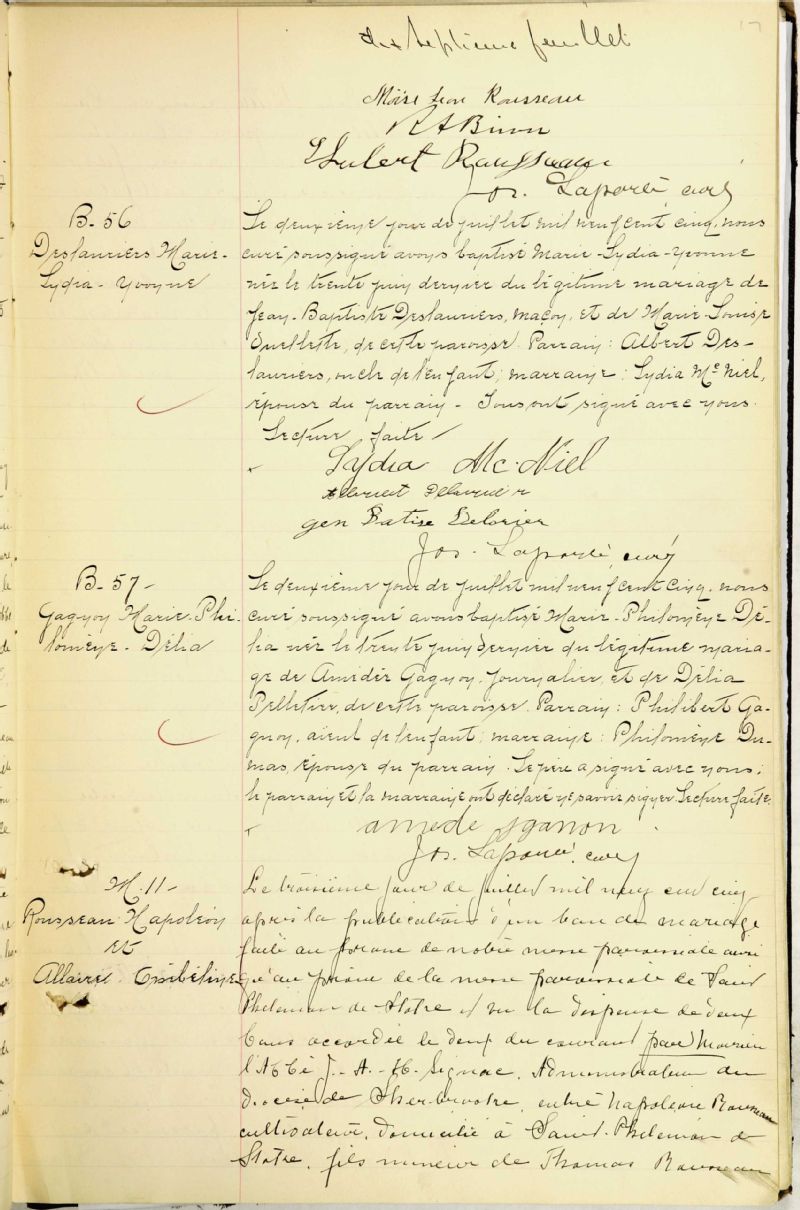 dix septième feuillet
17
Moïse Leon Rousseau
Hubert Rousseau
Jos. Laporte, curé
B-56
Deslauriers Marie-
Lydia-Yvonne
Le deuxième jour de juillet mil neuf cent cinq, nous
curé soussigné avons baptisé Marie-Lydia-Yvonne
née le trente juin dernier du légitime mariage de
Jean-Baptiste Deslauriers, maçon, et de Marie-Louise
Ouellette, de cette paroisse. Parrain: Albert Des-
lauriers, oncle de l'enfant; marraine: Lydia McNiel,
épouse du parrain - Tous ont signé avec nous.
Lecture faite
Lydia McNiel
gen Batise Delorier
Jos. Laporte, curé
B-57-
Gagnon Marie-Phi-
lomène-Délia
Le deuxième jour de juillet mil neuf cent cinq, nous
curé soussigné avons baptisé Marie-Philomène Dé-
lia née le trente juin dernier du légitime maria-
ge de Amédée Gagnon, journalier, et de Délia
Pelletier, de cette paroisse. Parrain: Philibert Ga-
gnon, aieul de l'enfant; marraine: Philomène Du-
mas, épouse du parrain. Le père a signé avec nous;
le parrain et la marraine ont déclaré ne savoir signer. Lecture faite.
amede gganon
Jos. Laporte, curé
M. 11-
Rousseau Napoléon
et
Allaire
Le troisième jour de juillet mil neuf cent cinq
après la publication d'un ban de mariage
faite au prône de notre messe paroissiale ainsi
qu'au prône de la messe paroissiale de Saint
Philémon de Stoke et vu la dispense de deux
bans accordée le deux du courant par Monsieur
l'Abbé J.-A.-H. Signac, Administrateur du
diocèse de Sherbrooke, entre Napoléon Rousseau
cultivateur, domicilié à Saint-Philémon de
Stoke, fils mineur de Thomas Rousseau